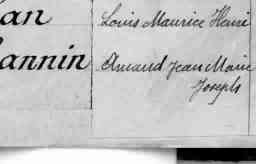 Louis Maurice Henri
Amand Jean Marie
Joseph